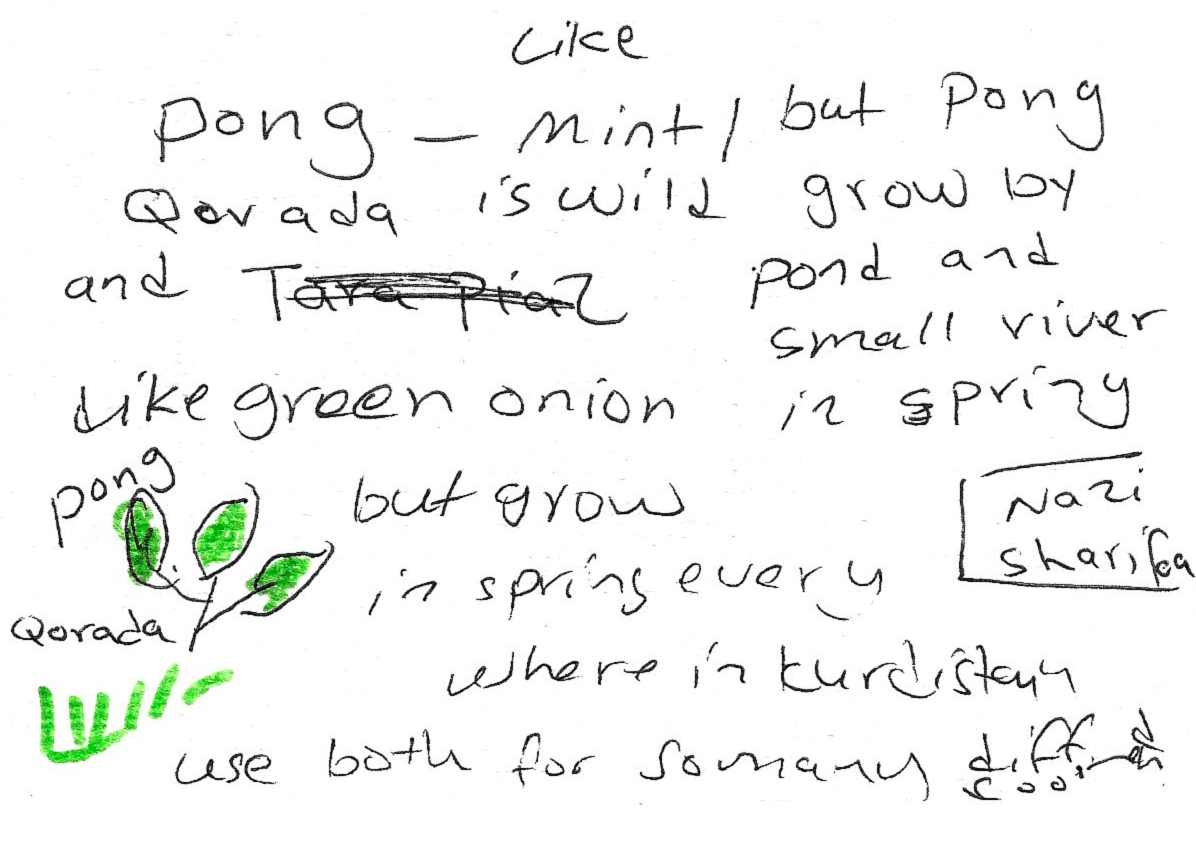 Like
Pong – Mint / but Pong
Qorada is wild grow by
and pond and
small river
Like green onion in spring
Pong
but grow
Nazi
Sharifa
in spring every
Qorada
where in Kurdistan
use both for so many